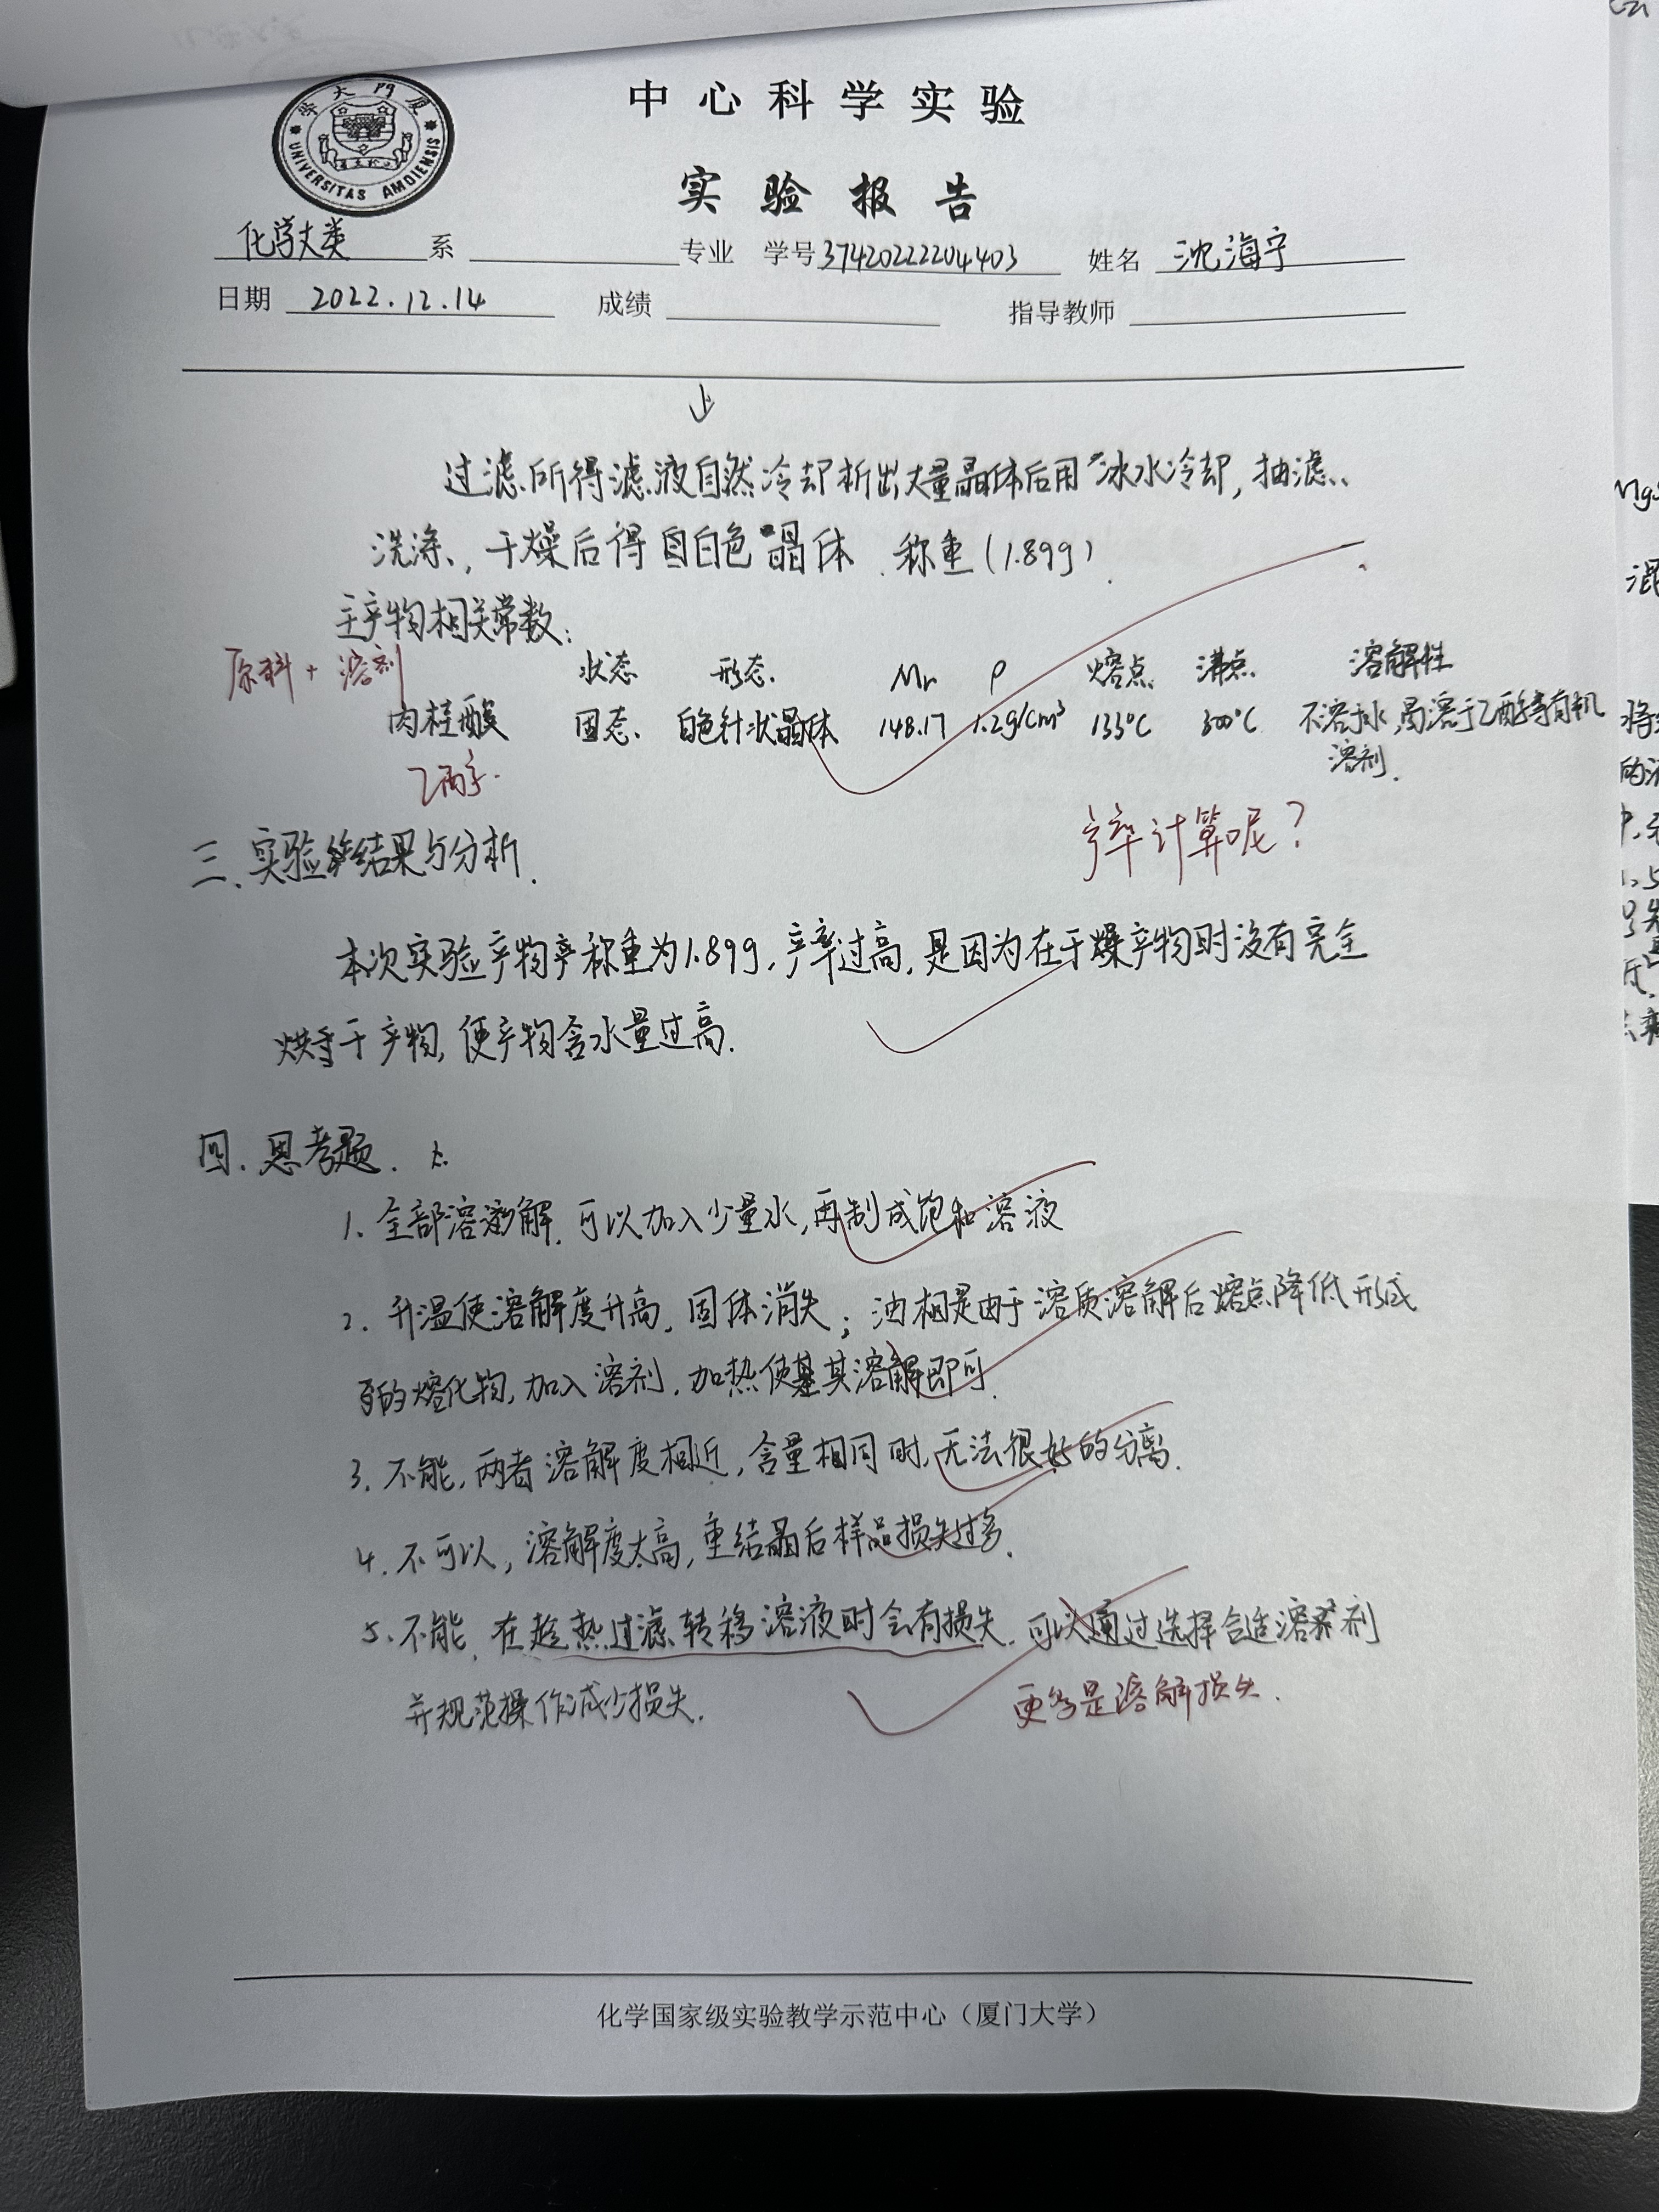 厦门大学
UNIVERSITAS AMOIENSIS
中心科学实验
实验报告
化学大类 系 专业 学号 37420222204403 姓名 沈海宁
日期 2022.12.14 成绩 指导教师
↓
过滤所得滤液自然冷却析出大量晶体后用冰水冷却,抽滤、
洗涤、,干燥后得白色晶体.称重(1.89g)
主产物相关常数:
原料+溶剂 状态 形态. Mr ρ 熔点 沸点 溶解性
肉桂酸 固态. 白色针状晶体 148.17 1.2g/cm³ 133℃ 300℃ 不溶于水,易溶于乙醇等有机
溶剂.
乙醇.
产率计算呢?
三.实验结果与分析.
本次实验产物称重为1.89g,产率过高,是因为在干燥产物时没有完全
烘干产物,使产物含水量过高.
四.思考题.
1.全部溶解.可以加入少量水,再制成饱和溶液
2.升温使溶解度升高,固体消失;油相是由于溶质溶解后熔点降低形成
的熔化物,加入溶剂,加热使其溶解即可.
3.不能,两者溶解度相近,含量相同时,无法很好的分离.
4.不可以,溶解度太高,重结晶后样品损失过多.
5.不能,在趁热过滤转移溶液时会有损失.可以通过选择合适溶剂
并规范操作减少损失.
更多是溶解损失.
化学国家级实验教学示范中心(厦门大学)